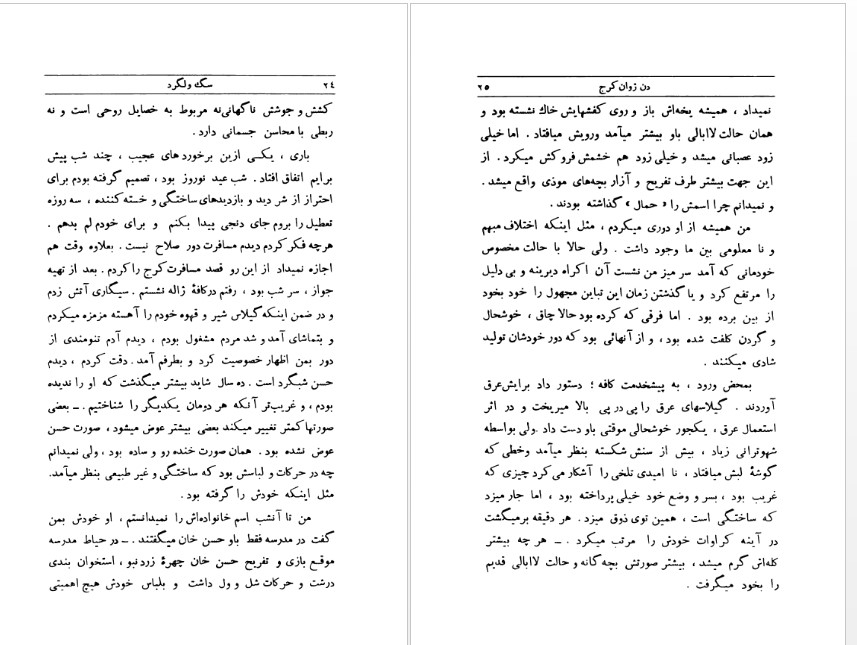 ۲۴ سگ ولگرد
کشش و جوشش ناگهانی نه مربوط به خصایل روحی است و نه
ربطی با محاسن جسمانی دارد .
باری ، یکی ازین برخوردهای عجیب ، چند شب پیش
برایم اتفاق افتاد . شب عید نوروز بود ، تصمیم گرفته بودم برای
احتراز از شر دید و بازدیدهای ساختگی و خسته کننده ، سه روزه
تعطیل را بروم جای دنجی پیدا بکنم و برای خودم لم بدهم .
هرچه فکر کردم دیدم مسافرت دور صلاح نیست . بعلاوه وقت هم
اجازه نمیداد از این رو قصد مسافرت کرج را کردم . بعد از تهیه
جواز ، سر شب بود ، رفتم در کافهٔ ژاله نشستم . سیگاری آتش زدم
و در ضمن اینکه گیلاس شیر و قهوه خودم را آهسته مزمزه میکردم
و بتماشای آمد و شد مردم مشغول بودم ، دیدم آدم تنومندی از
دور بمن اظهار خصوصیت کرد و بطرفم آمد . دقت کردم ، دیدم
حسن شبگرد است . ده سال شاید بیشتر میگذشت که او را ندیده
بودم ، و غریب‌تر آنکه هر دومان یکدیگر را شناختیم . ـ بعضی
صورتها کمتر تغییر میکند بعضی بیشتر عوض میشود ، صورت حسن
عوض نشده بود . همان صورت خنده رو و ساده بود ، ولی نمیدانم
چه در حرکات و لباسش بود که ساختگی و غیر طبیعی بنظر میآمد .
مثل اینکه خودش را گرفته بود .
من تا آنشب اسم خانواده‌اش را نمیدانستم ، او خودش بمن
گفت در مدرسه فقط باو حسن خان میگفتند . ـ در حیاط مدرسه
موقع بازی و تفریح حسن خان چهرهٔ زردنبو ، استخوان بندی
درشت و حرکات شل و ول داشت و بلباس خودش هیچ اهمیتی
دن ژوان کرج ۲۵
نمیداد ، همیشه یخه‌اش باز و روی کفشهایش خاك نشسته بود و
همان حالت لاابالی باو بیشتر میآمد ورویش میافتاد . اما خیلی
زود عصبانی میشد و خیلی زود هم خشمش فروکش میکرد . از
این جهت بیشتر طرف تفریح و آزار بچه‌های موذی واقع میشد .
و نمیدانم چرا اسمش را « حمال » گذاشته بودند .
من همیشه از او دوری میکردم ، مثل اینکه اختلاف مبهم
و نا معلومی بین ما وجود داشت . ولی حالا با حالت مخصوص
خودمانی که آمد سر میز من نشست آن اکراه دیرینه و بی دلیل
را مرتفع کرد و یا گذشتن زمان این تباین مجهول را خود بخود
از بین برده بود . اما فرقی که کرده بود حالا چاق ، خوشحال
و گردن کلفت شده بود ، و از آنهائی بود که دور خودشان تولید
شادی میکنند .
بمحض ورود ، به پیشخدمت کافه ؛ دستور داد برایش عرق
آوردند . گیلاسهای عرق را پی در پی بالا میریخت و در اثر
استعمال عرق ، یکجور خوشحالی موقتی باو دست داد . ولی بواسطه
شهوترانی زیاد ، بیش از سنش شکسته بنظر میآمد وخطی که
گوشهٔ لبش میافتاد ، نا امیدی تلخی را آشکار می کرد چیزی که
غریب بود ، بسر و وضع خود خیلی پرداخته بود ، اما جار میزد
که ساختگی است ، همین توی ذوق میزد . هر دقیقه برمیگشت
در آینه کراوات خودش را مرتب میکرد . ـ هر چه بیشتر
کله‌اش گرم میشد ، بیشتر صورتش بچه گانه و حالت لاابالی قدیم
را بخود میگرفت .